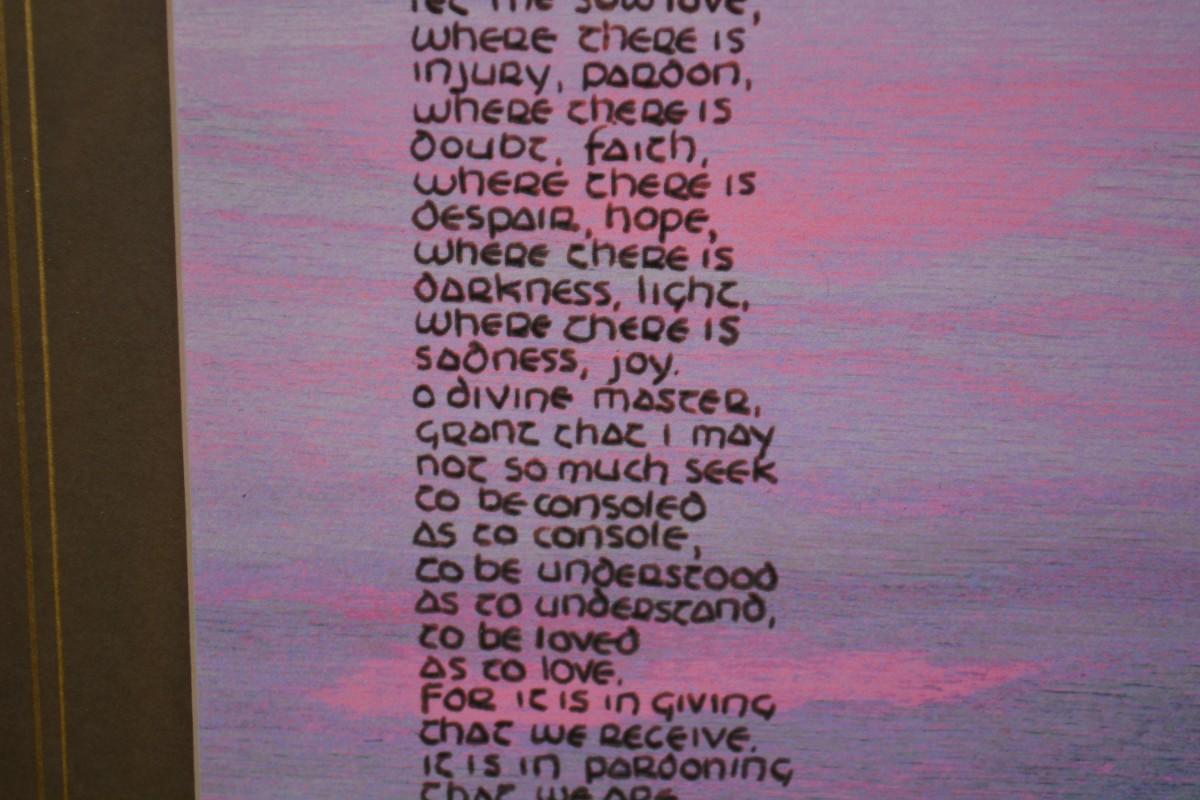 let me sow love,
where there is
injury, pardon,
where there is
doubt, faith,
where there is
despair, hope,
where there is
darkness, light,
where there is
sadness, joy.
o divine master,
grant that i may
not so much seek
to be consoled
as to console,
to be understood
as to understand,
to be loved
as to love.
for it is in giving
that we receive.
it is in pardoning
that we are